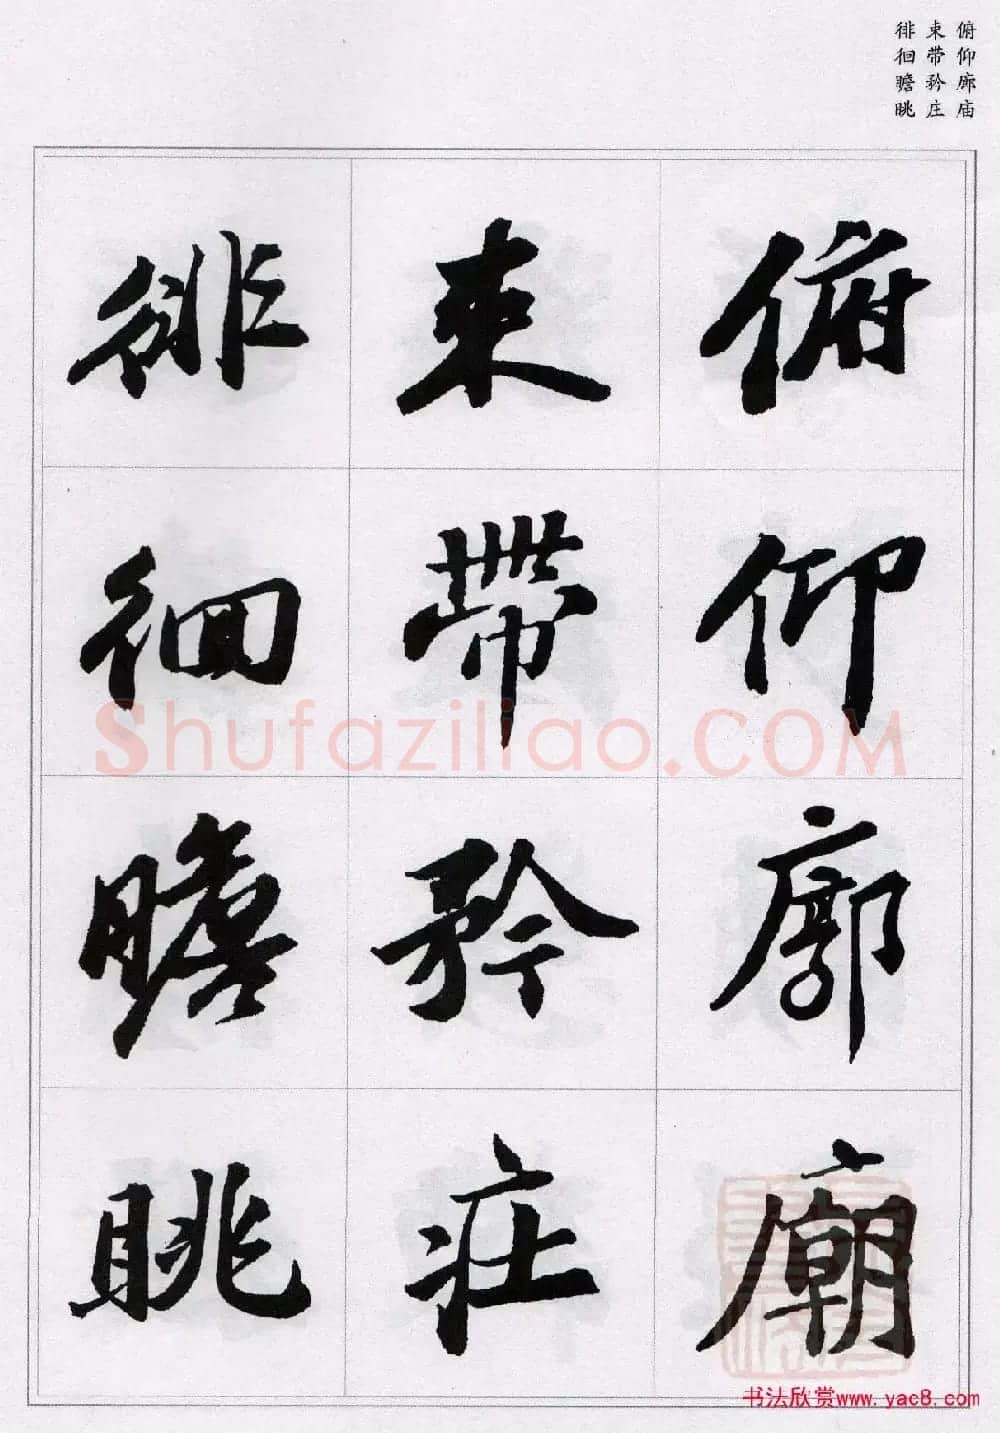 俯仰廊庙
束带矜庄
徘徊瞻眺
俯仰廓廟
束帶矜莊
徘徊瞻眺
Shufaziliao.COM
书法欣赏www.yac8.com